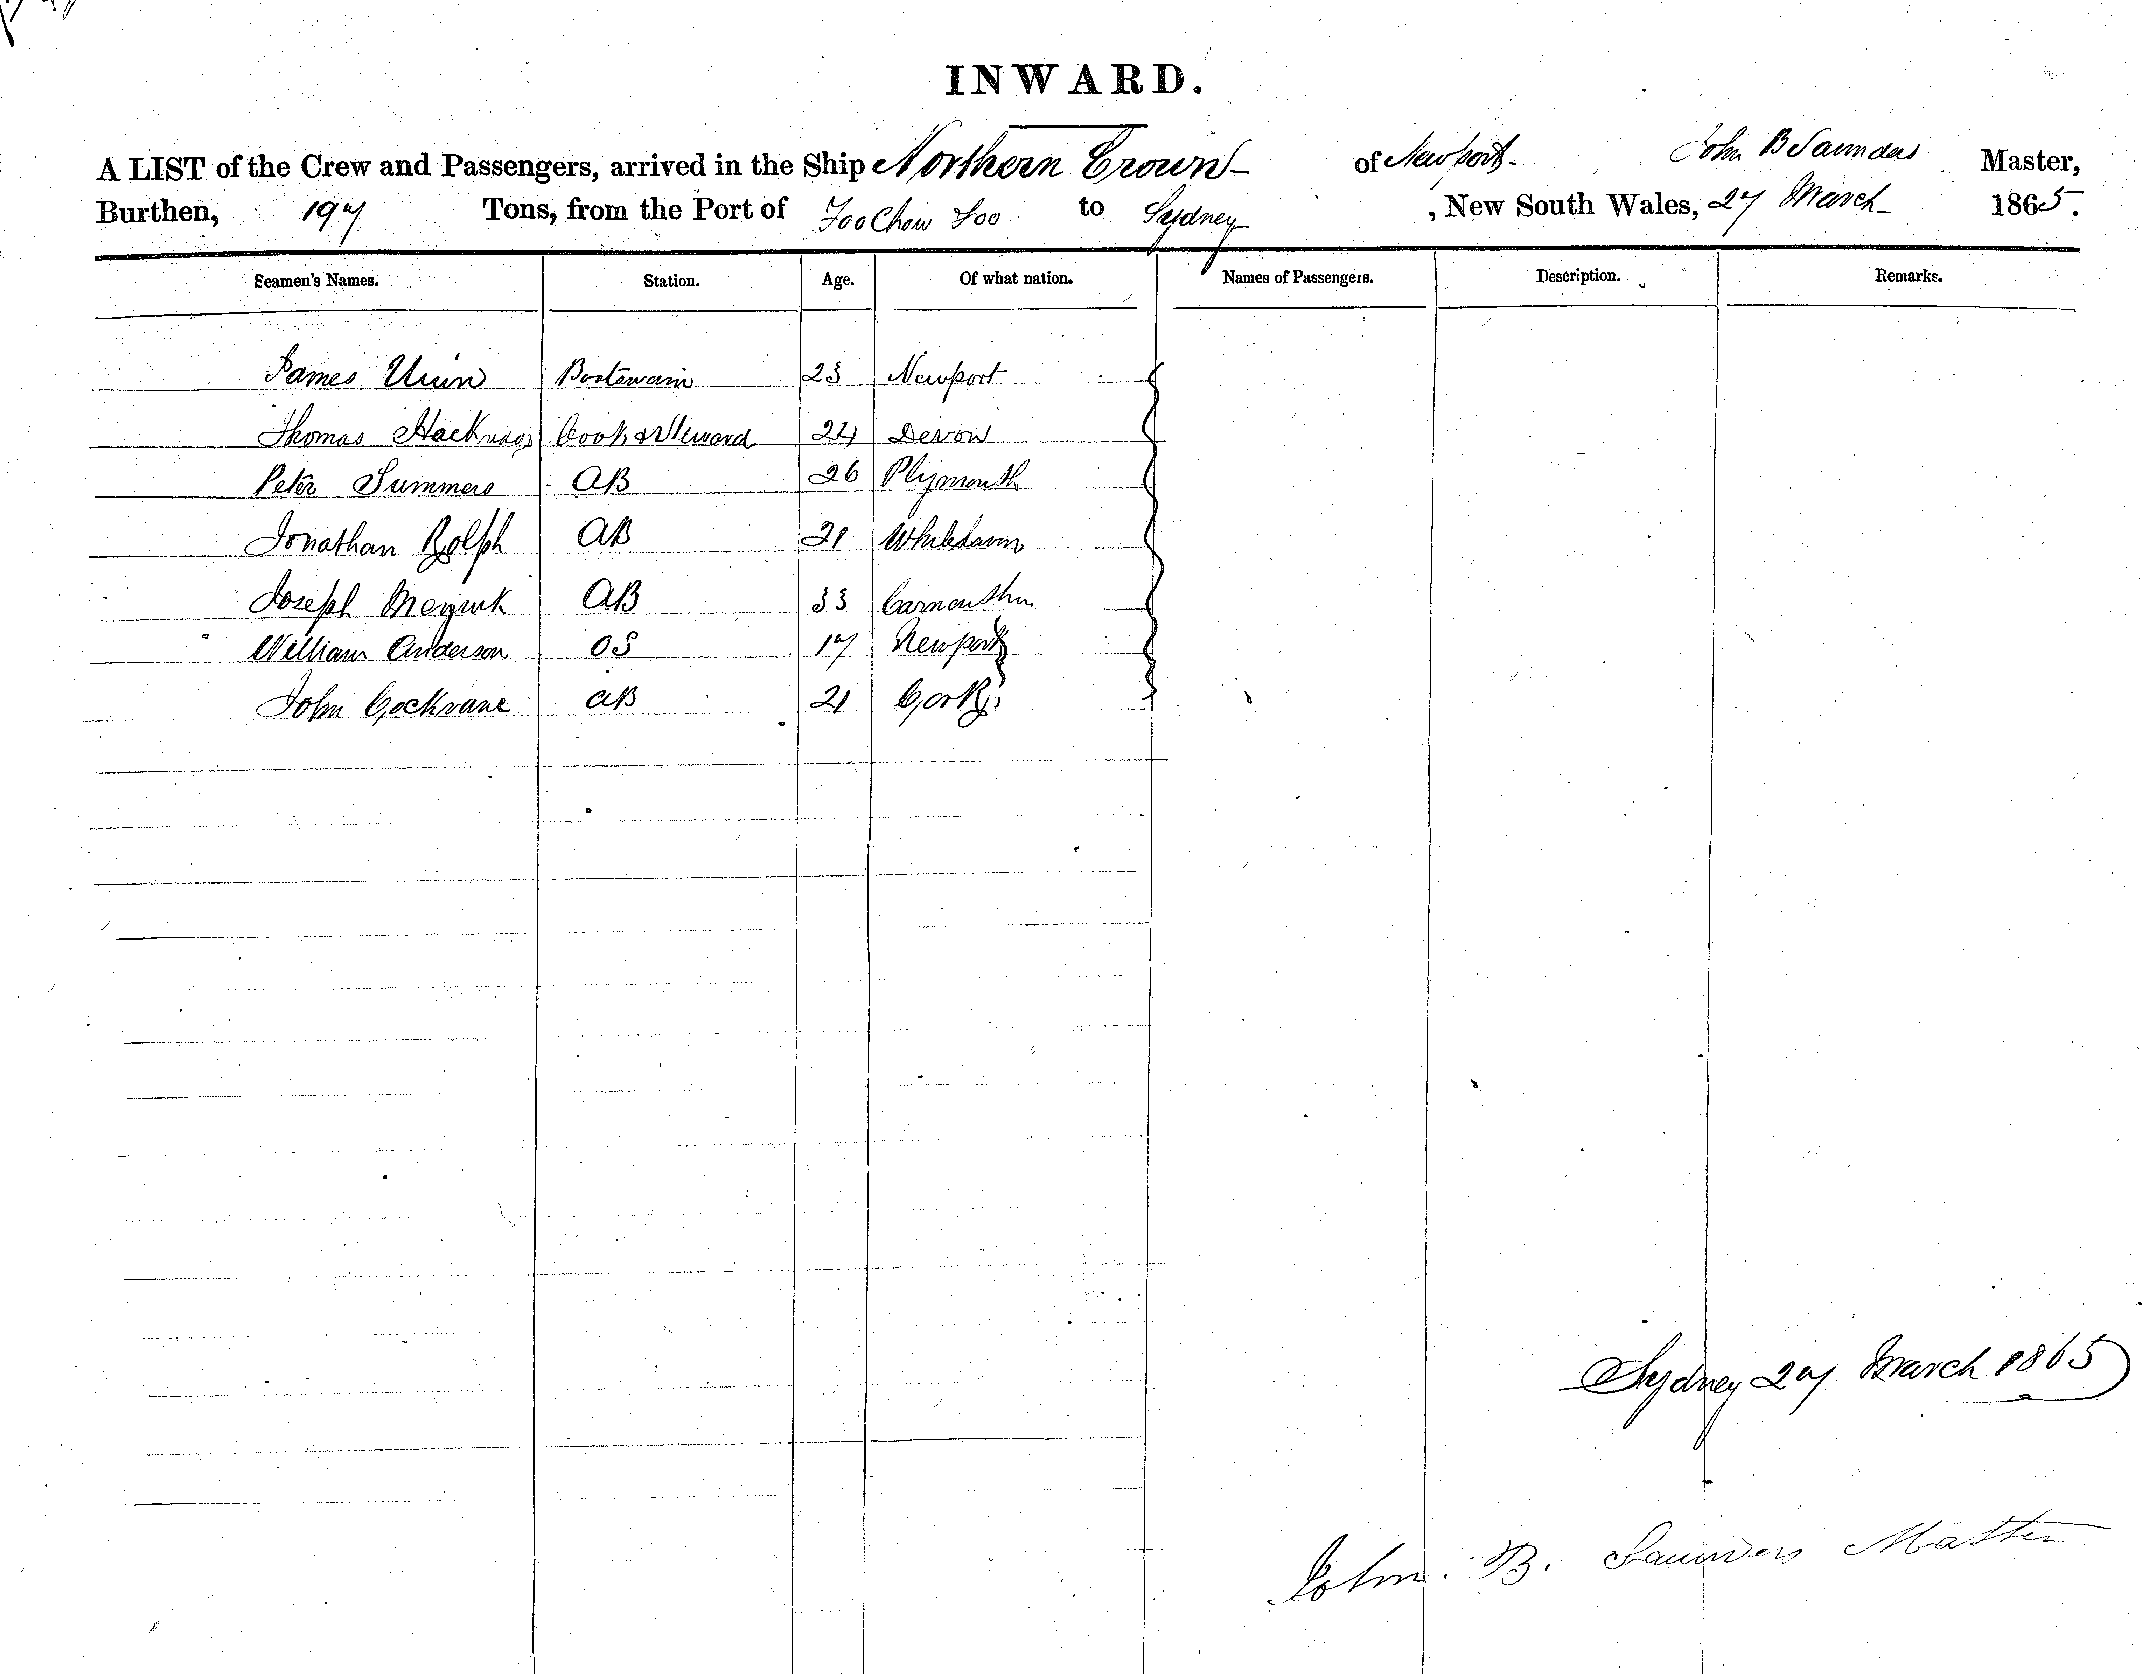 INWARD.
A LIST of the Crew and Passengers, arrived in the Ship Northern Crown of Newport. John B Saunders Master,
Burthen, 197 Tons, from the Port of Foo Chow Foo to Sydney, New South Wales, 27 March 1865.
Seamen's Names. Station. Age. Of what nation. Names of Passengers. Description. Remarks.
James 23 Newport
Thomas Cook & Steward 24 Devon
Peter Summers AB 26 Plymouth
Jonathan Rolph AB 21
Joseph AB 33
William Anderson OS 17 Newport
John Cockrane AB 21 Cork
Sydney 27 March 1865
John. B. Saunders Master